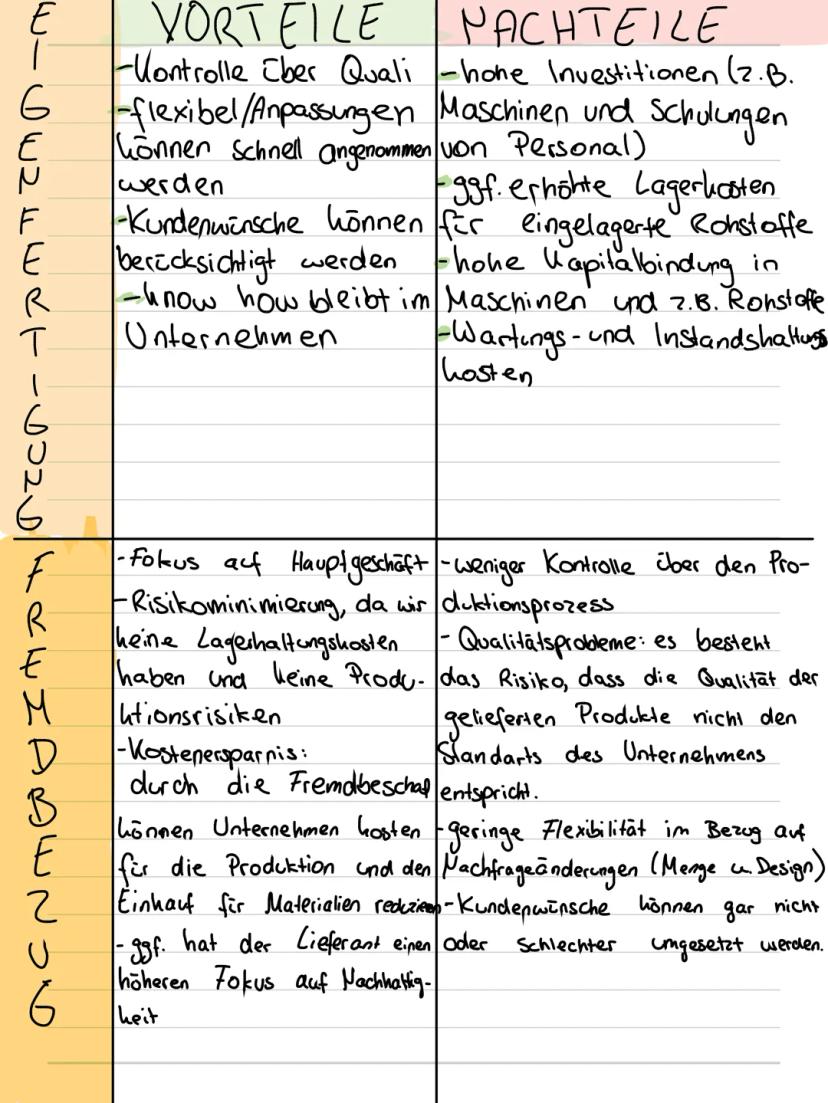 EIGENFERTIGUNG
VORTEILE
-Kontrolle über Quali
-flexibel/Anpassungen
können schnell angenommen
werden
-Kundenwünsche können
berücksichtigt werden
-know how bleibt im
Unternehmen
NACHTEILE
-hohe Investitionen (z.B.
Maschinen und Schulungen
von Personal)
-ggf. erhöhte Lagerkosten
für eingelagerte Rohstoffe
-hohe Kapitalbindung in
Maschinen und z.B. Rohstoffe
-Wartungs-und Instandshaltungs
kosten
FREMDBEZUG
-Fokus auf Hauptgeschäft
-Risikominimierung, da wir
keine Lagerhaltungskosten
haben und keine Produ-
ktionsrisiken
-Kostenersparnis:
durch die Fremdbeschaf
können Unternehmen kosten
für die Produktion und den
Einkauf für Materialien reduzieren
-ggf. hat der Lieferant einen
höheren Fokus auf Nachhaltig-
keit
-weniger Kontrolle über den Pro-
duktionsprozess
-Qualitätsprobleme: es besteht
das Risiko, dass die Qualität der
gelieferten Produkte nicht den
Standarts des Unternehmens
entspricht.
-geringe Flexibilität im Bezug auf
Nachfrageänderungen (Menge u. Design)
-Kundenwünsche können gar nicht
oder schlechter umgesetzt werden.